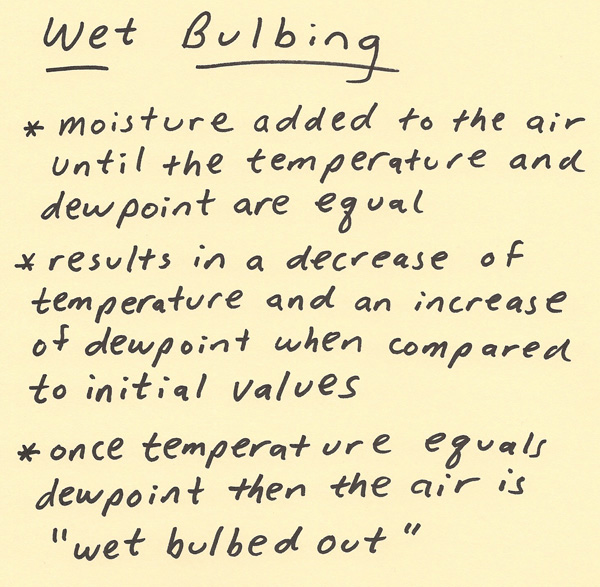 Wet Bulbing
* moisture added to the air
until the temperature and
dewpoint are equal
* results in a decrease of
temperature and an increase
of dewpoint when compared
to initial values
* once temperature equals
dewpoint then the air is
"wet bulbed out"